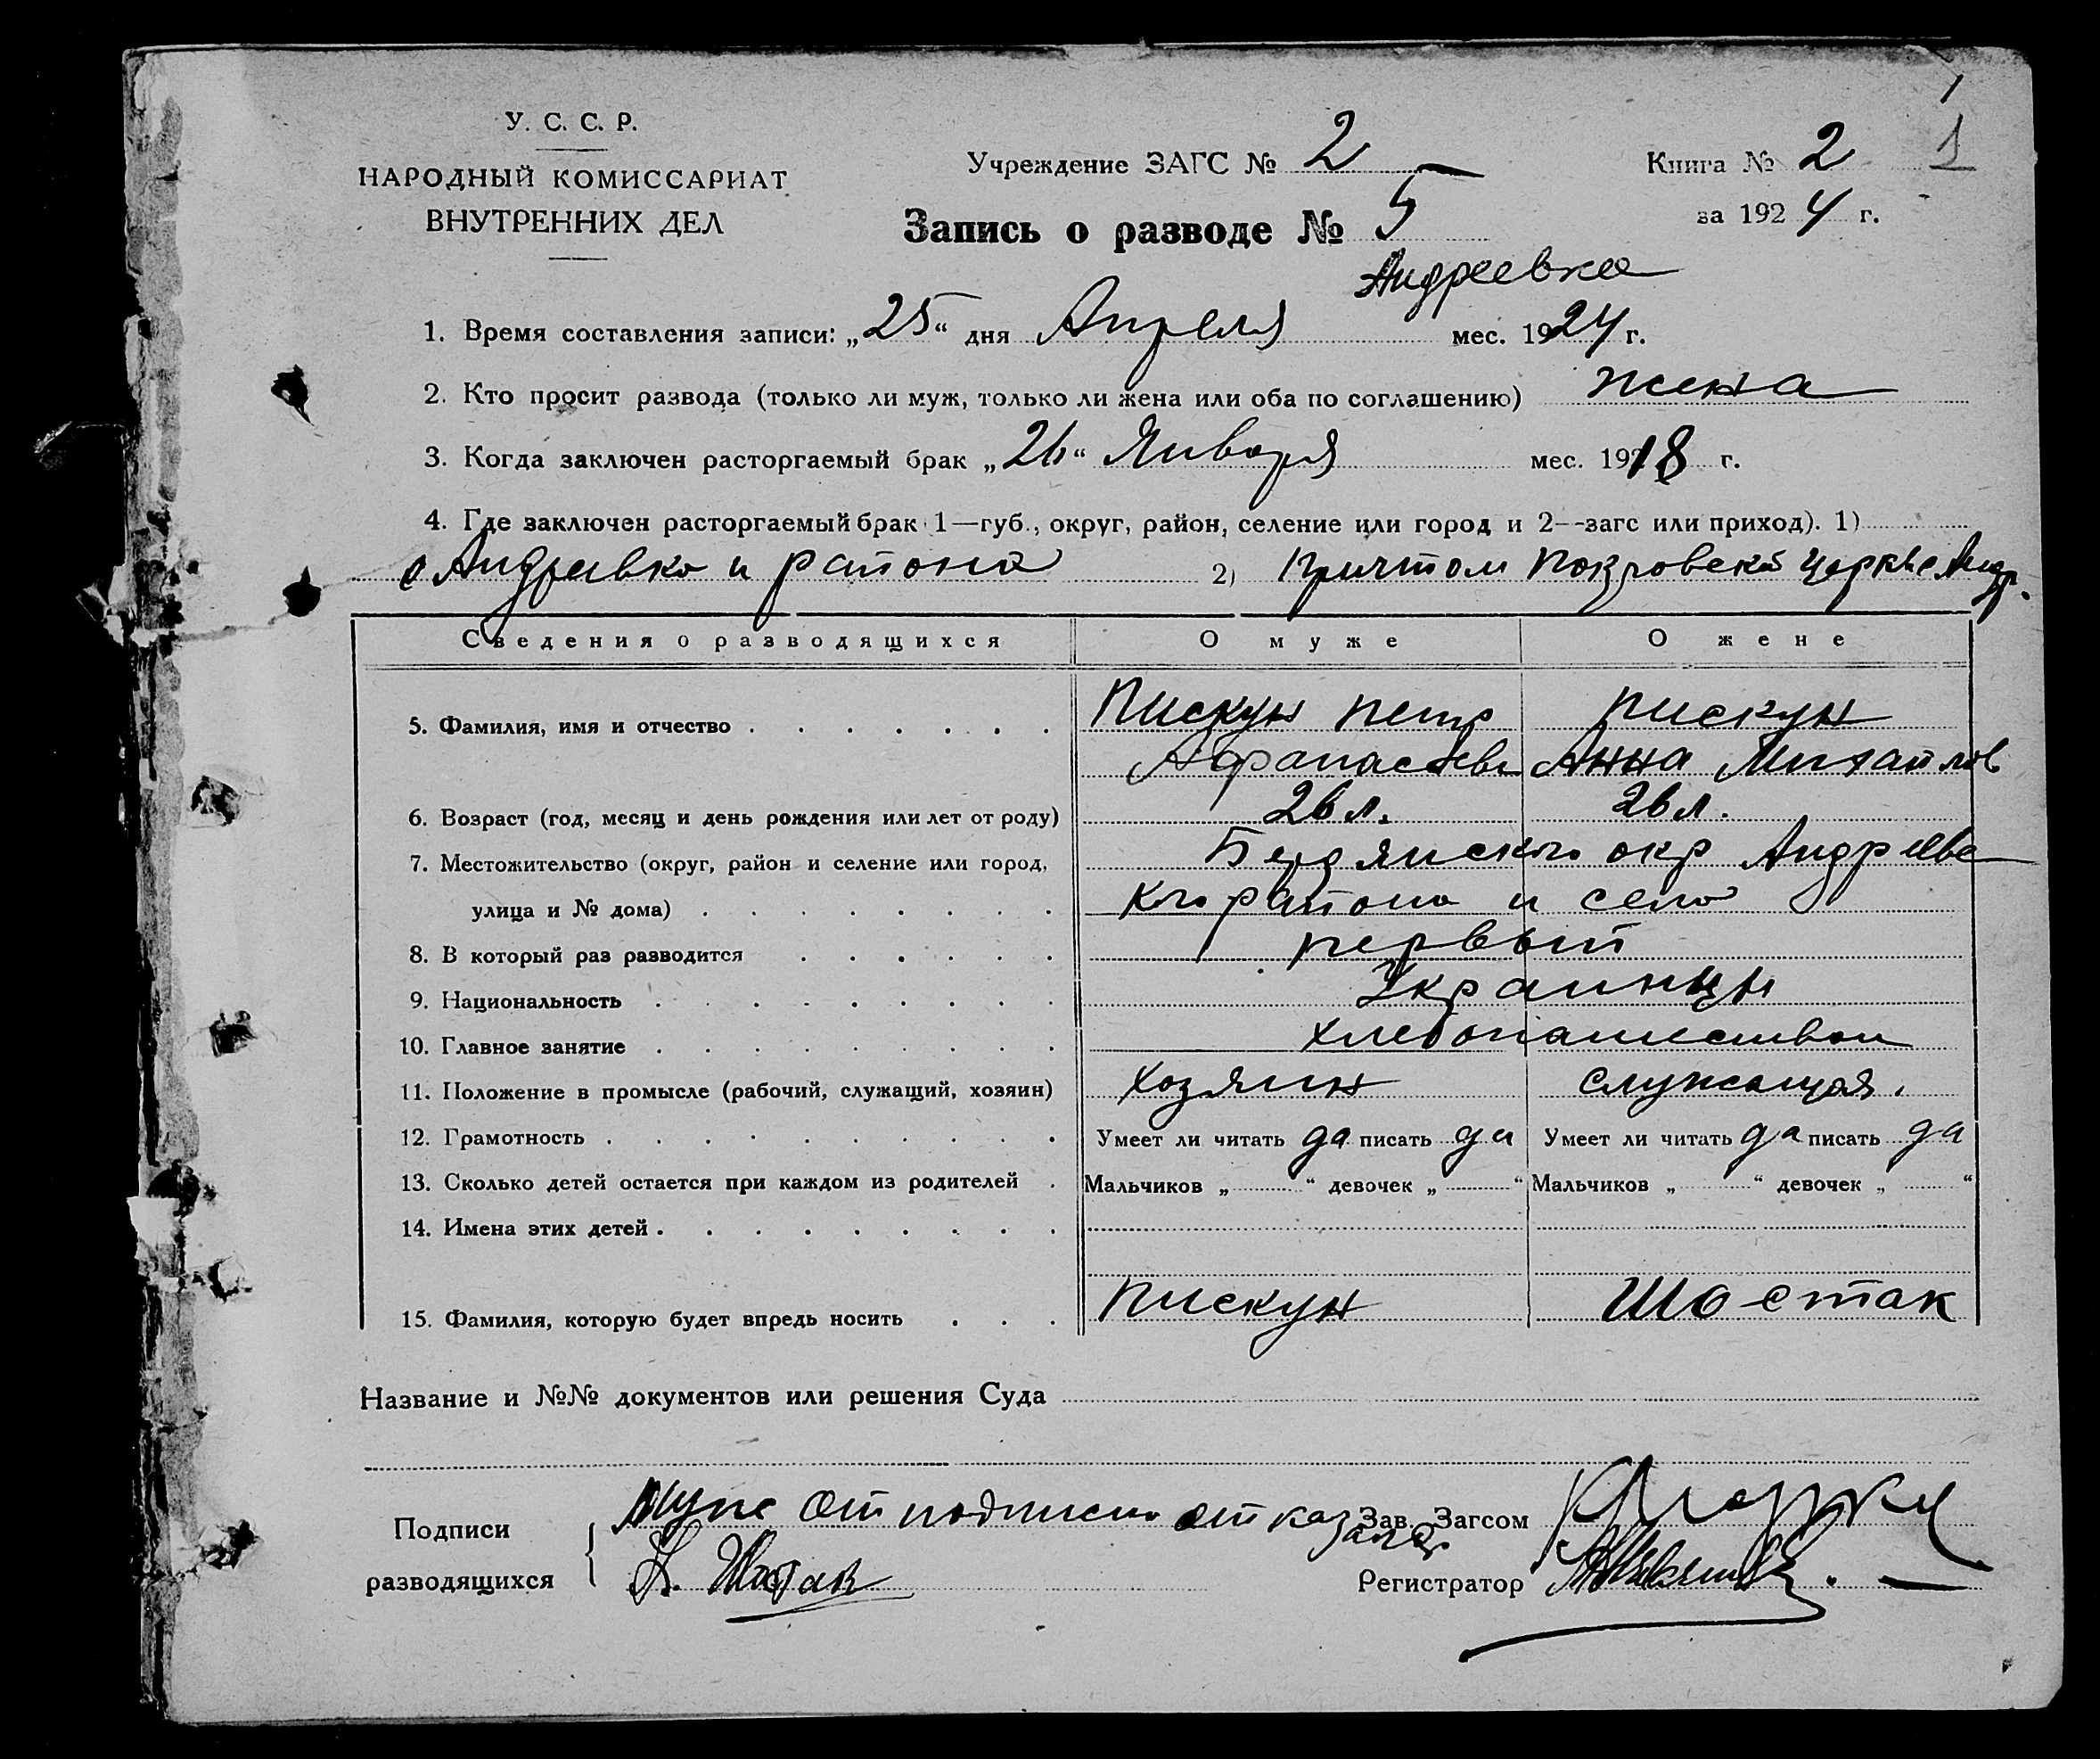 1
У. С. С. Р.
НАРОДНЫЙ КОМИССАРИАТ
ВНУТРЕННИХ ДЕЛ
Учреждение ЗАГС № 2
Книга № 2 1
за 1924 г.
Запись о разводе № 5
Андреевка
1. Время составления записи: „25“ дня Апреля мес. 1924 г.
2. Кто просит развода (только ли муж, только ли жена или оба по соглашению) жена
3. Когда заключен расторгаемый брак „26“ Января мес. 1918 г.
4. Где заключен расторгаемый брак 1—губ., округ, район, селение или город и 2--загс или приход). 1)
с Андреевка и района 2) Причтом Покровской церкве Андр.
Сведения о разводящихся О муже О жене
5. Фамилия, имя и отчество Пискун Петр Пискун
Афанасьев Анна Михайлов
6. Возраст (год, месяц и день рождения или лет от роду) 26 л. 26 л.
7. Местожительство (округ, район и селение или город, Бердянского окр Андреевс
улица и № дома) кго района и село
8. В который раз разводится первый
9. Национальность Украинцы
10. Главное занятие хлебопашеством
11. Положение в промысле (рабочий, служащий, хозяин) хозяин служащая.
12. Грамотность Умеет ли читать да писать да Умеет ли читать да писать да
13. Сколько детей остается при каждом из родителей Мальчиков „ “ девочек „ “ Мальчиков „ “ девочек „ “
14. Имена этих детей
15. Фамилия, которую будет впредь носить Пискун Шостак
Название и №№ документов или решения Суда
Подписи муже от подписи отказался Зав. Загсом
разводящихся А. Шостак Регистратор